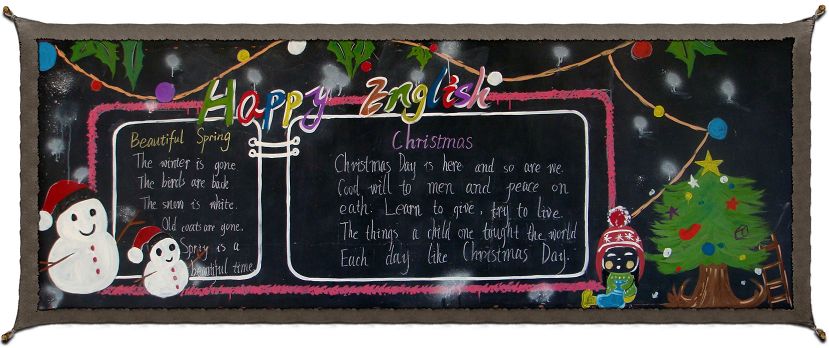 Happy English
Beautiful Spring
The winter is gone.
The birds are back
The snow is white.
Old coats are gone.
Spriy is a
beautiful time
Christmas
Christmas Day is here and so are we.
Good will to men and peace on
eath. Learn to give, try to live.
The things a child one tought the world
Each day like Christmas Day.